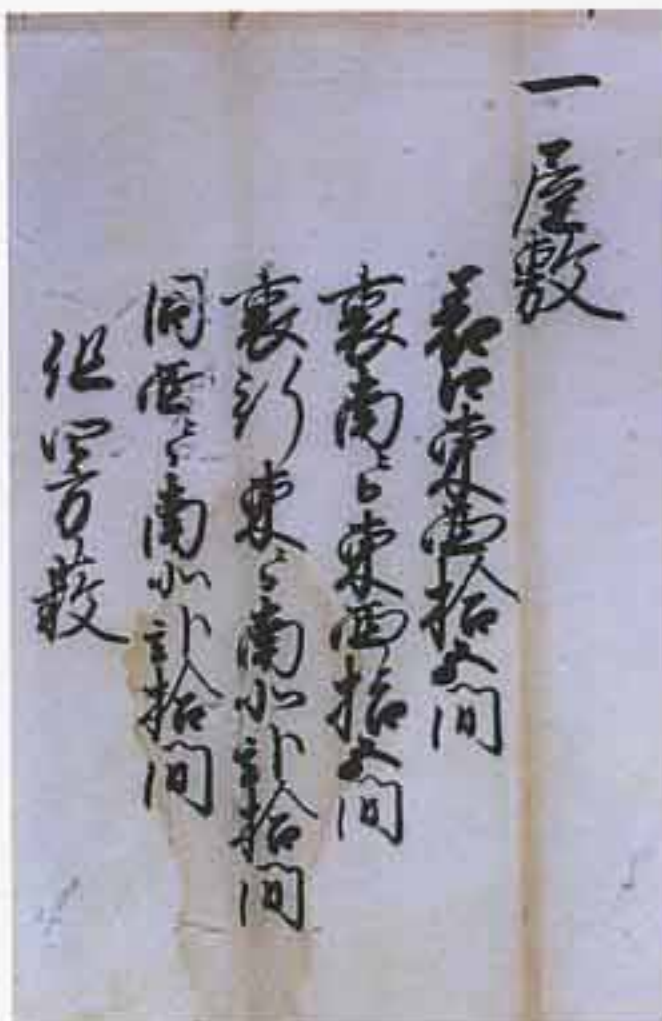 一屋敷
表口東西拾五間
裏南ニ而東西拾五間
裏行東ニ而南北弐拾間
同西ニ而南北弐拾間
但四方藪